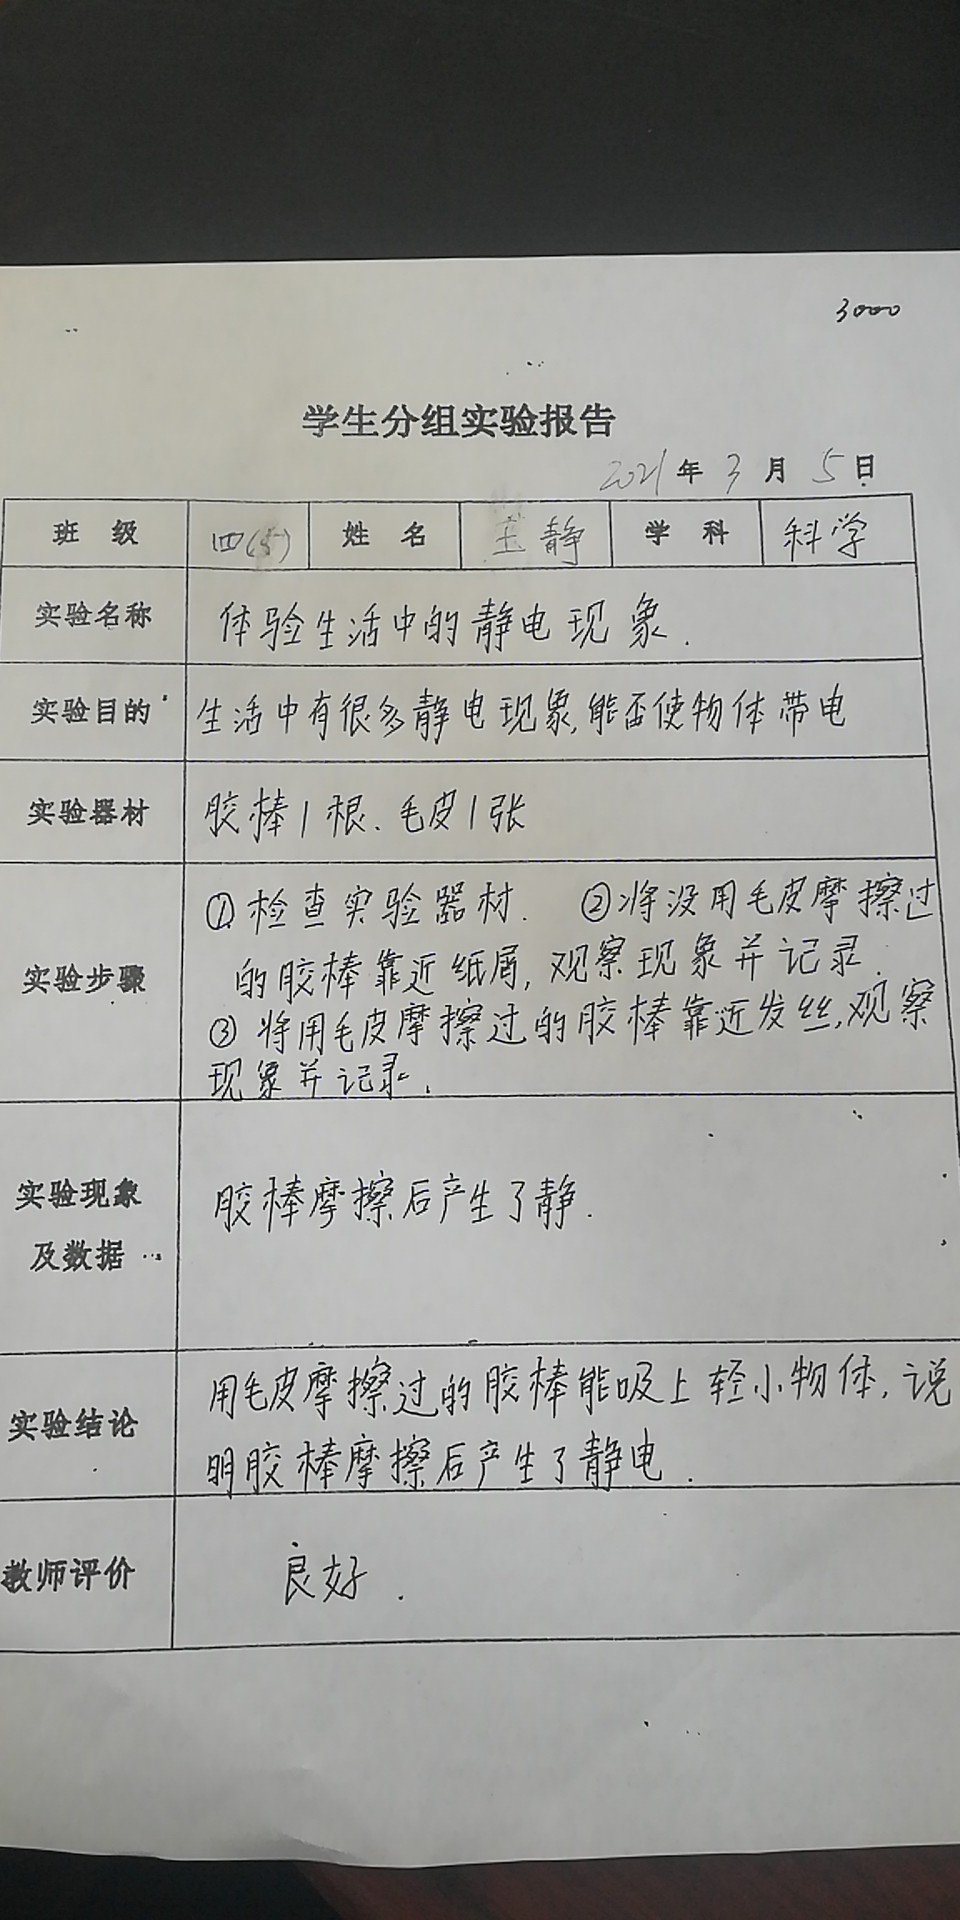 3000
学生分组实验报告
2021年3月5日
班 级 四(5) 姓 名 王静 学 科 科学
实验名称 体验生活中的静电现象.
实验目的 生活中有很多静电现象,能否使物体带电
实验器材 胶棒1根、毛皮1张
实验步骤
①检查实验器材. ②将没用毛皮摩擦过
的胶棒靠近纸屑,观察现象并记录.
③将用毛皮摩擦过的胶棒靠近发丝,观察
现象并记录.
实验现象
及数据
胶棒摩擦后产生了静.
实验结论
用毛皮摩擦过的胶棒能吸上轻小物体,说
明胶棒摩擦后产生了静电.
教师评价 良好.